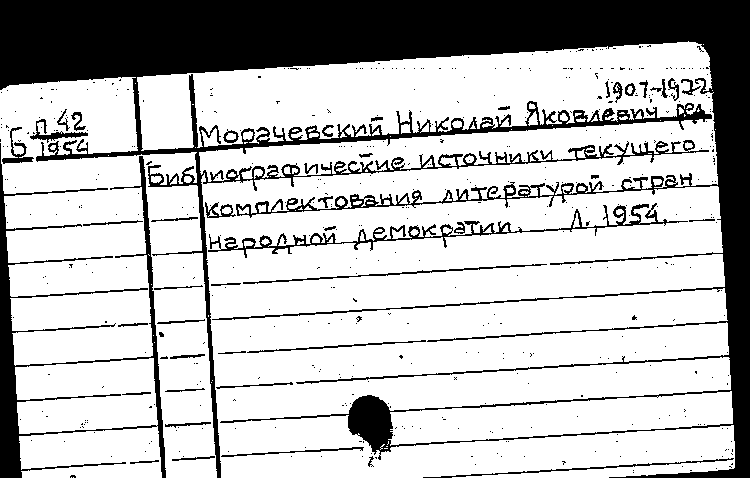 1907-1922
Б п.42
1954
Морачевский, Николай Яковлевич, ред.
Библиографические источники текущего
комплектования литературой стран
народной демократии. Л., 1954.